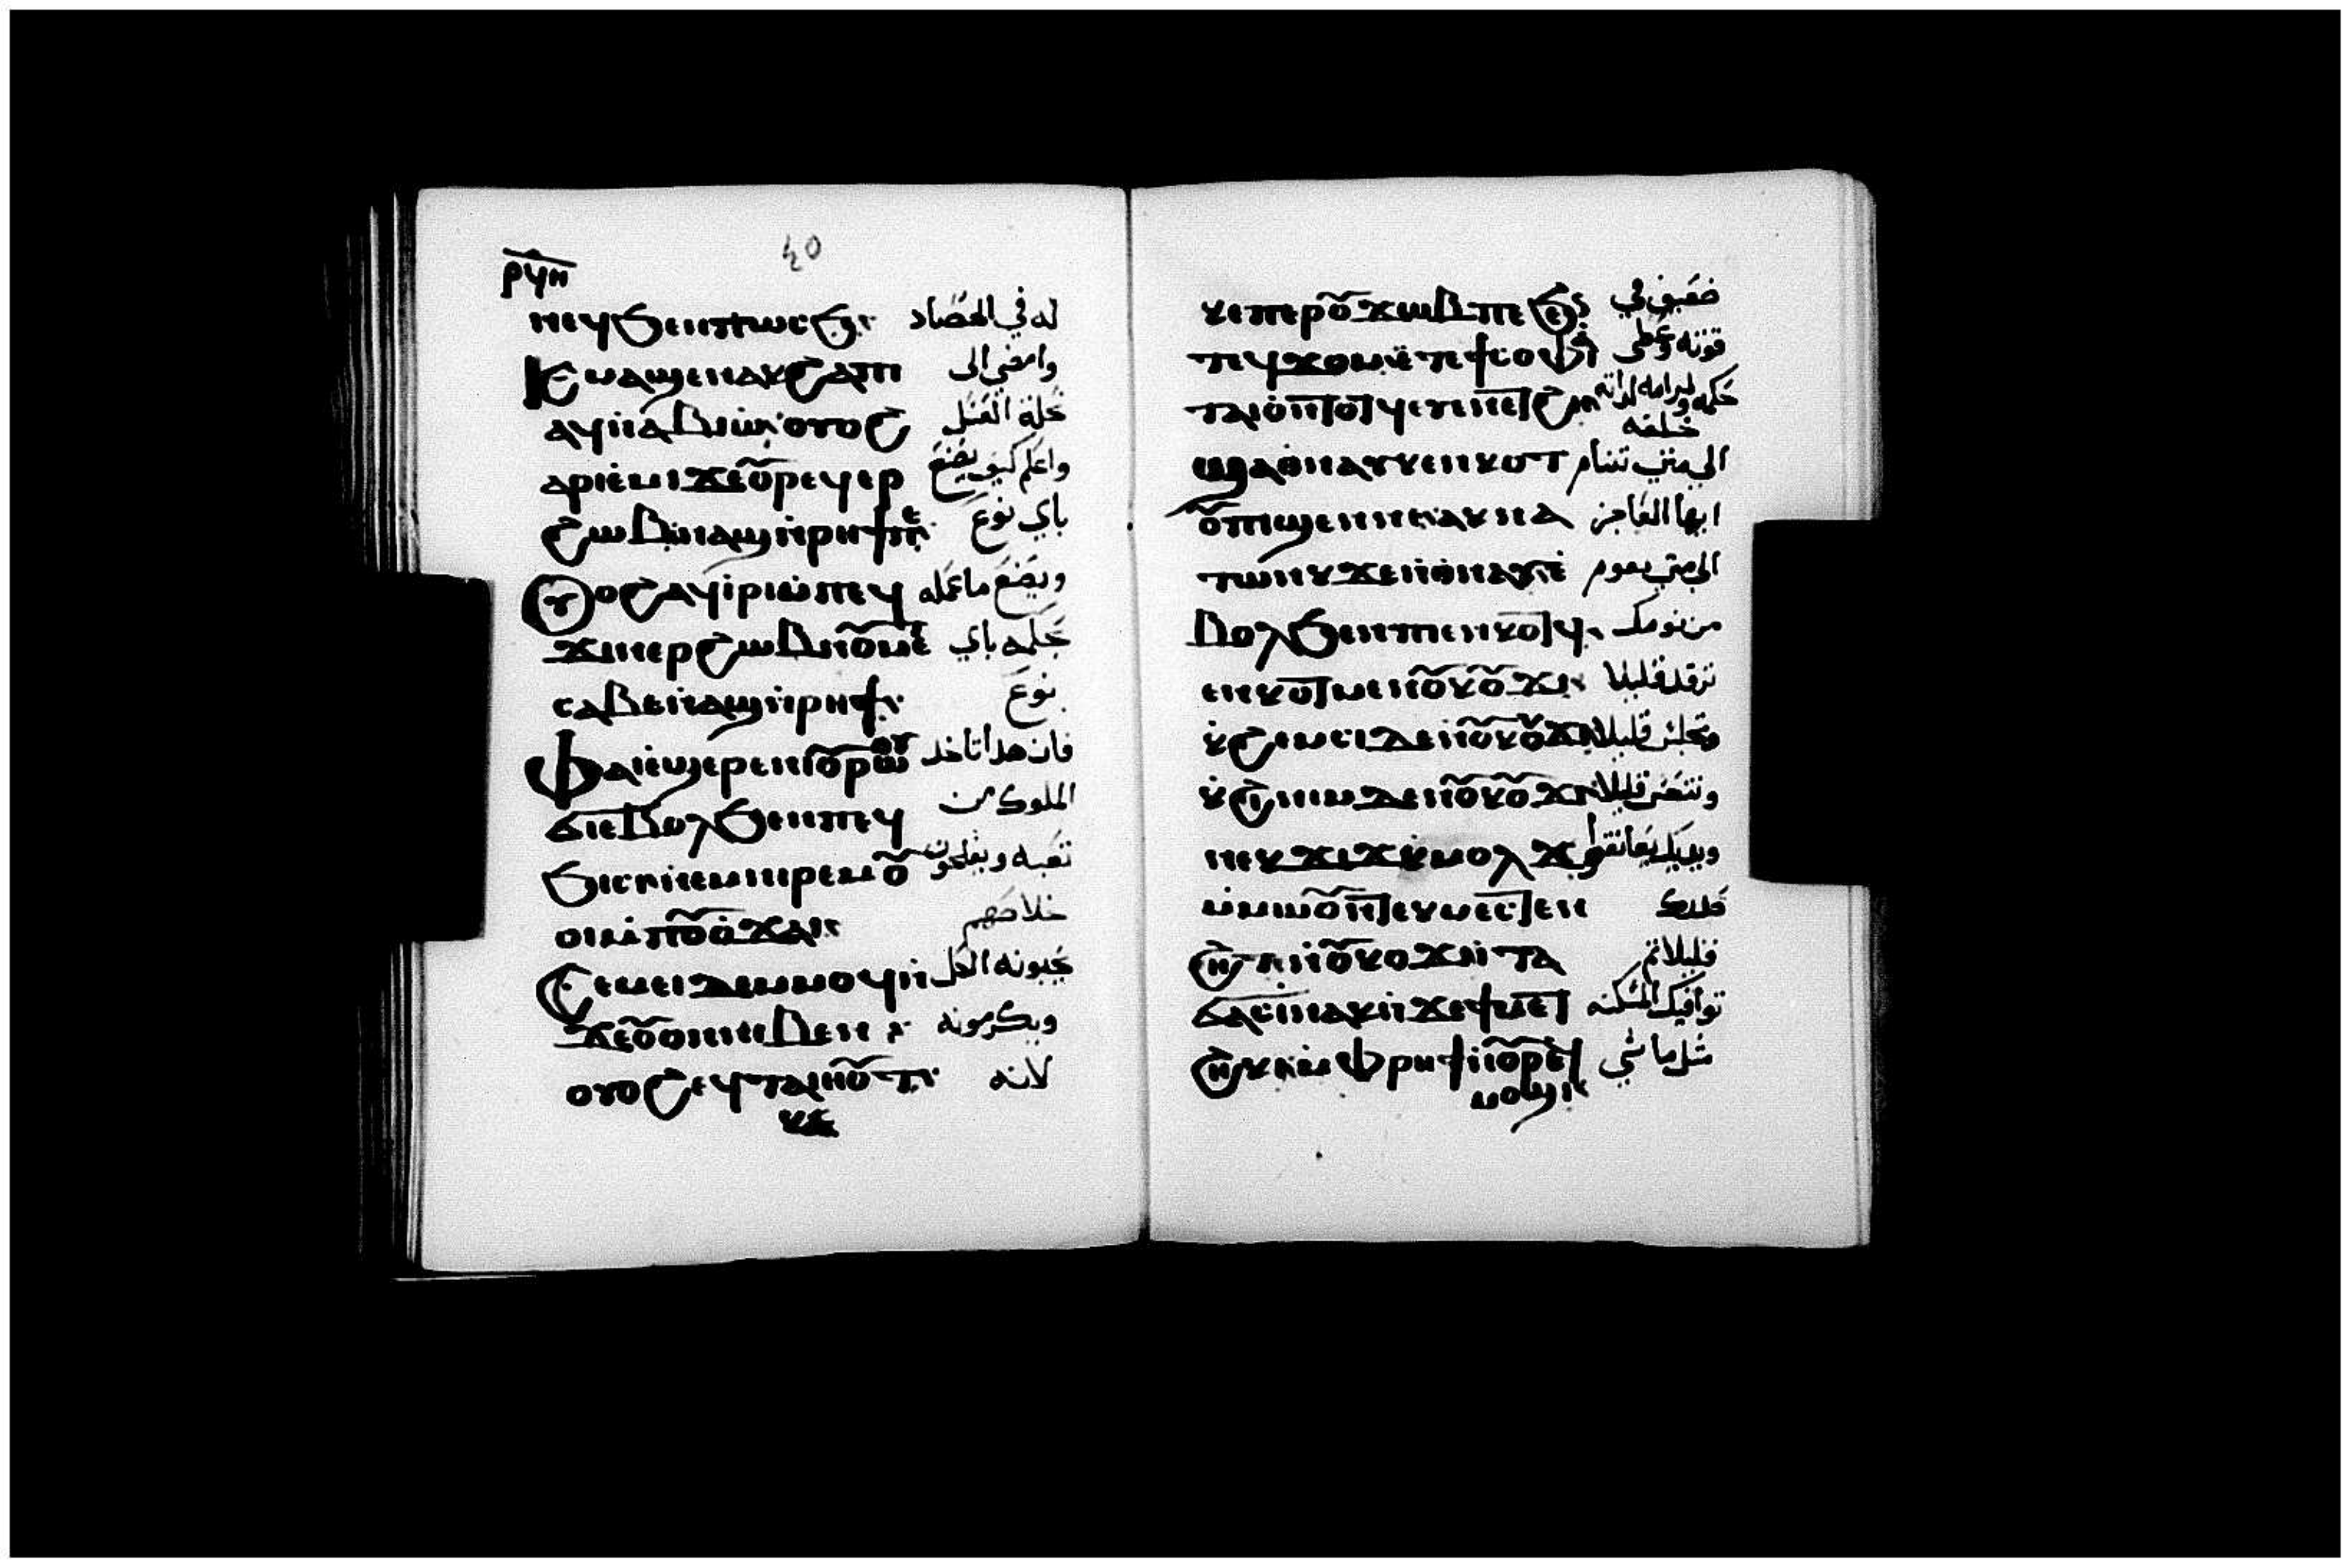 ⲣϥⲏ
ⲛⲉϥϧⲉⲛⲡⲱⲥϧ له في الحصاد
ⲓⲉⲙⲁϣⲉⲛⲁⲕϩⲁⲡⲓ وامضي الى
ⲁϥⲛⲁⲃⲓⲱ ⲟⲩⲟϩ نحلة العسل
ⲁⲣⲓⲉⲙⲓϫⲉⲟⲩⲣⲉϥⲉⲣ واعلم كيف يصنع
ϩⲱⲃⲛⲁϣⲛⲣⲏϯⲡⲉ باي نوع
ⲟⲩⲟϩⲁϥⲓⲣⲓⲙⲡⲉϥ ويصنع ما عمله
ϫⲓⲛⲉⲣϩⲱⲃⲛⲟⲩⲙⲉⲧ بحكمه باي
ⲥⲁⲃⲉⲛⲁϣⲛⲣⲏϯ نوع
ⲫⲁⲓⲉϣⲉⲣⲉⲛⲓⲟⲩⲣⲱⲟⲩ فان هدا تاخد
ϭⲓⲉⲃⲟⲗϧⲉⲛⲡⲉϥ الملوك من
ϧⲓⲥⲓⲛⲉⲙⲛⲓⲣⲉⲙⲟⲩ تعبه
ⲟⲓⲙⲡⲟⲩⲟⲩϫⲁⲓ خلاصهم
ⲥⲉⲙⲉⲓⲇⲉⲙⲙⲟϥⲛ يحبونه الكل
ϫⲉⲟⲩⲟⲛⲛⲓⲃⲉⲛ ويكرمونه
ⲟⲩⲟϩⲉϥⲧⲁⲓⲏⲟⲩⲧ لانه
ⲕⲉ
ⲕⲉⲡⲉⲣⲟⲩϫⲱⲃⲡⲉϧⲉⲛ ضعيف في
ⲧⲉϥϫⲟⲙⲉⲧⲉϥⲥⲟⲫⲓⲁ قوته
ⲧⲁⲓⲟⲛⲧⲟⲧϥⲉⲧⲉⲛⲉⲧϩ حكمه خلفه
ϣⲁⲑⲛⲁⲩⲕⲉⲛⲕⲟⲧ الي متي تنام
ⲟⲩⲡⲓϣⲉⲛⲛⲉⲛⲁⲕⲛⲁ ايها العاجز
ⲧⲱⲛⲕϫⲉⲛⲑⲛⲁⲩⲉ الي متي تقوم
ⲃⲟⲗϧⲉⲛⲡⲉⲛⲕⲟⲧ من نومك
ⲉⲛⲕⲟⲧⲙⲉⲛⲟⲩⲕⲟⲩϫⲓ ترقد قليلا
ⲕϩⲉⲙⲥⲓⲇⲉⲛⲟⲩⲕⲟⲩϫⲓ وتجلس قليلا
ⲕϩⲓⲛⲓⲙⲇⲉⲛⲟⲩⲕⲟⲩϫⲓ وتنعس قليلا
ⲛⲉⲕϫⲓϫⲕⲙⲟⲗϫ
ⲙⲙⲱⲟⲩⲛⲧⲉⲕⲙⲉⲥⲧⲉⲛ
ϩⲏⲧⲛⲟⲩⲕⲟϫⲓⲓⲧⲁ قليلا ثم
ϭⲁⲥⲓⲛⲁⲕⲛϫⲉϯⲙⲉⲧ توافيك المسكنه
ϩⲏⲕⲓⲙⲫⲣⲏϯⲛⲟⲩⲣⲉϥ مثل ماشي
ⲙⲟϣⲓ